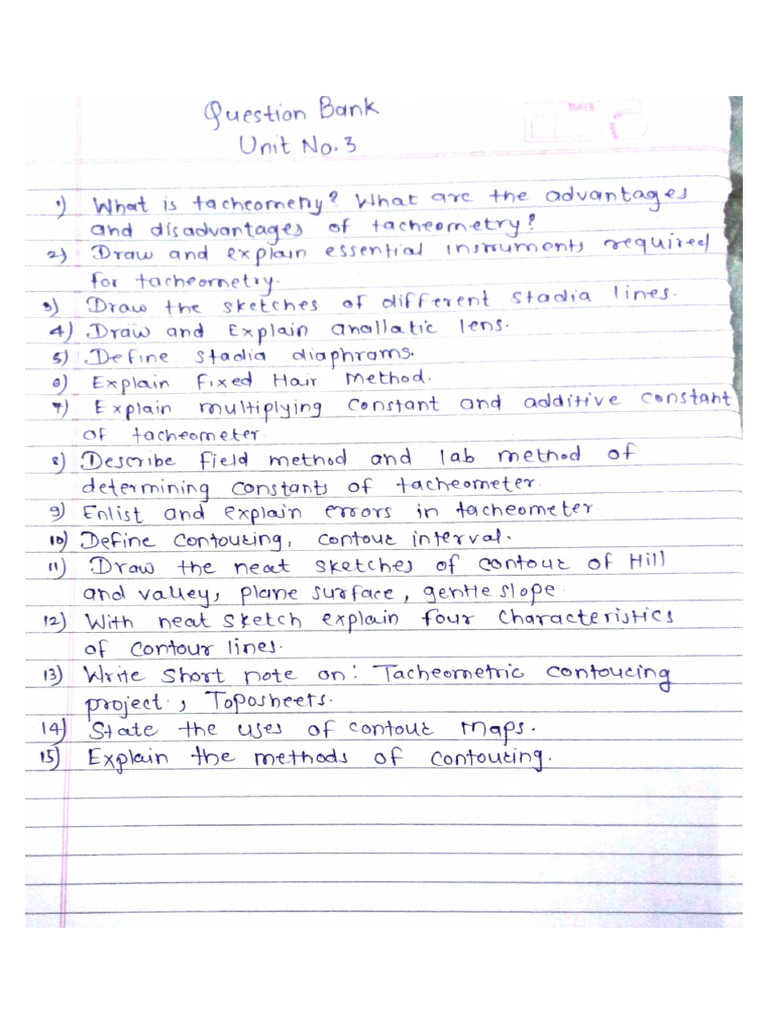 Question Bank
DATE
Unit No. 3
1) What is tacheometry? What are the advantages
and disadvantages of tacheometry?
2) Draw and explain essential instruments required
for tacheometry.
3) Draw the sketches of different stadia lines.
4) Draw and Explain anallatic lens.
5) Define stadia diaphrams.
6) Explain Fixed Hair Method.
7) Explain multiplying constant and additive constant
of tacheometer
8) Describe field method and lab method of
determining constants of tacheometer.
9) Enlist and explain errors in tacheometer
10) Define contouring, contour interval.
11) Draw the neat sketches of contour of Hill
and valley, plane surface, gentle slope.
12) With neat sketch explain four characteristics
of contour lines.
13) Write short note on: Tacheometric contouring
project., Toposheets.
14) State the uses of contour maps.
15) Explain the methods of contouring.